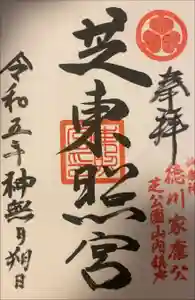 奉拝
徳川家康公
芝公園山内鎮座
芝東照宮
令和五年神無月朔日